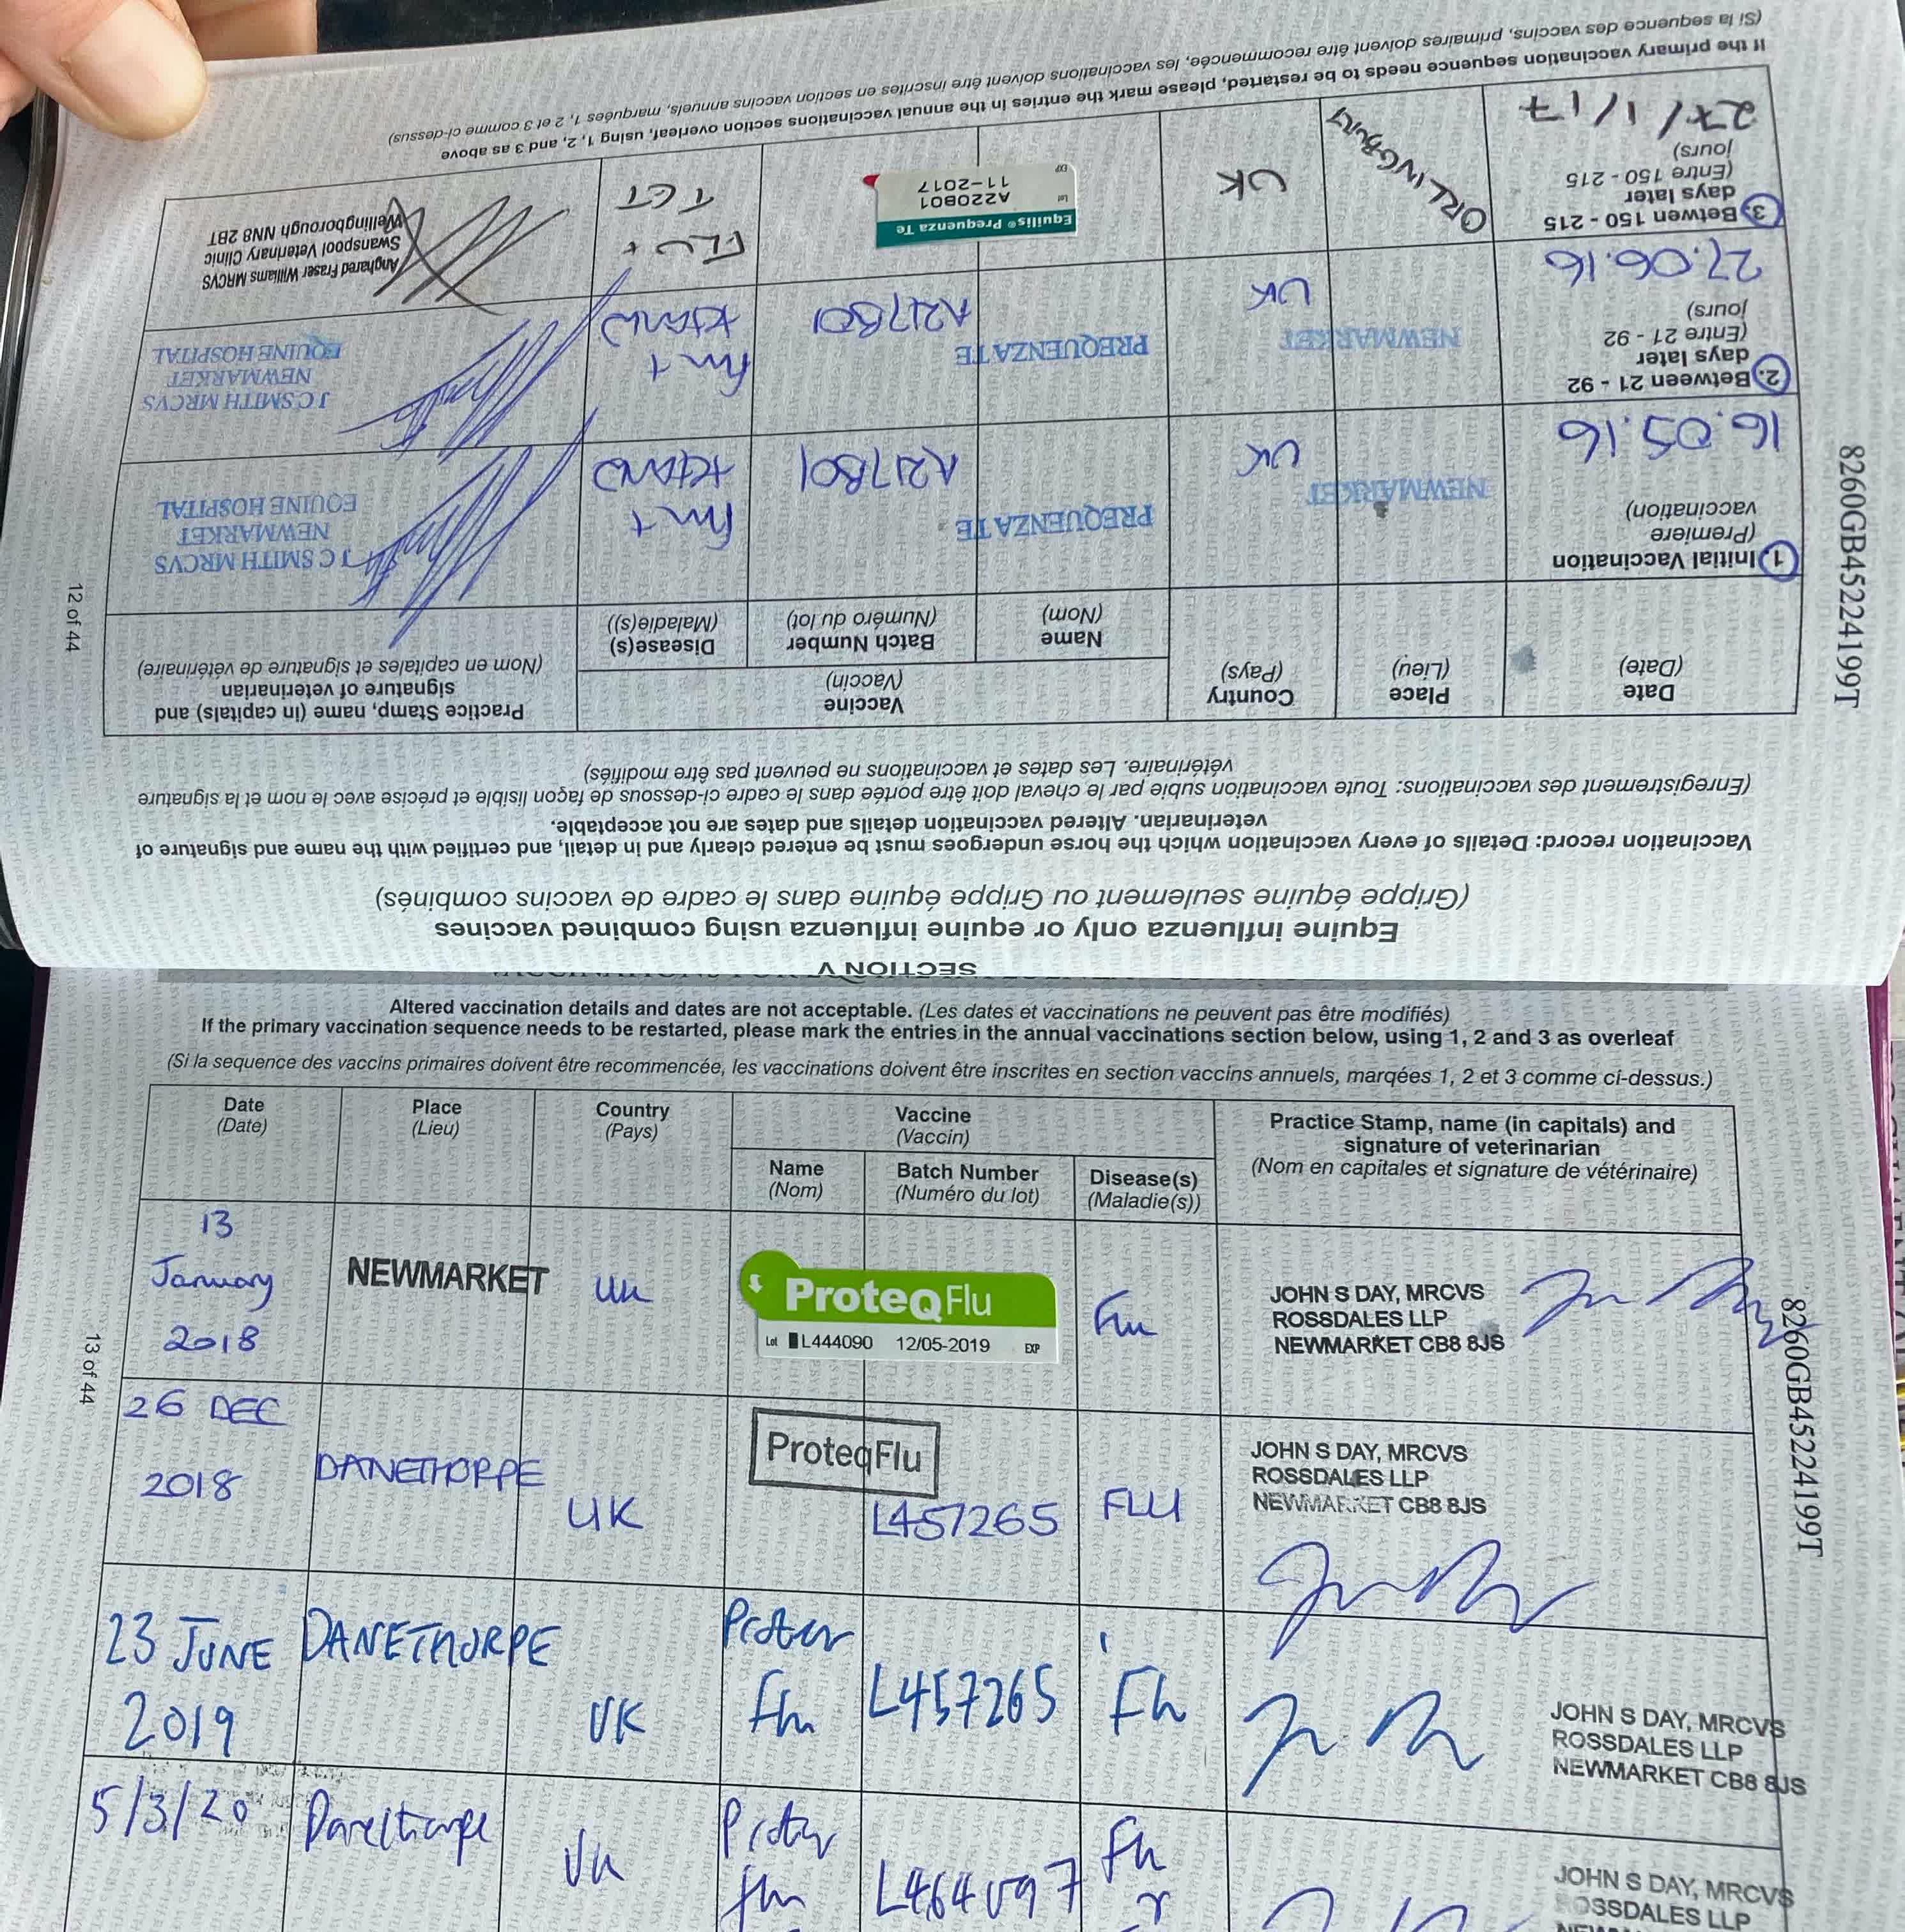 8260GB45224199T
12 of 44
SECTION V
Equine influenza only or equine influenza using combined vaccines
(Grippe équine seulement ou Grippe équine dans le cadre de vaccins combinés)
Vaccination record: Details of every vaccination which the horse undergoes must be entered clearly and in detail, and certified with the name and signature of
veterinarian. Altered vaccination details and dates are not acceptable.
(Enregistrement des vaccinations: Toute vaccination subie par le cheval doit être portée dans le cadre ci-dessous de façon lisible et précise avec le nom et la signature
vétérinaire. Les dates et vaccinations ne peuvent pas être modifiés)
Date
(Date)
Place
(Lieu)
Country
(Pays)
Vaccine
(Vaccin)
Name
(Nom)
Batch Number
(Numéro du lot)
Disease(s)
(Maladie(s))
Practice Stamp, name (in capitals) and
signature of veterinarian
(Nom en capitales et signature de vétérinaire)
1. Initial Vaccination
(Premiere
vaccination)
16.05.16
NEWMARKET
UK
PREQUENZA TE
A217B01
Flu +
tetanus
J C SMITH MRCVS
NEWMARKET
EQUINE HOSPITAL
2. Between 21 - 92
days later
(Entre 21 - 92
jours)
27.06.16
NEWMARKET
UK
PREQUENZA TE
A217B01
Flu +
tetanus
J C SMITH MRCVS
NEWMARKET
EQUINE HOSPITAL
3. Betwen 150 - 215
days later
(Entre 150 - 215
jours)
27/1/17
ORLINGBURY
UK
Equilis® Prequenza Te
Lot A220B01
EXP 11-2017
FLU +
TET
Angharad Fraser Williams MRCVS
Swanspool Veterinary Clinic
Wellingborough NN8 2BT
If the primary vaccination sequence needs to be restarted, please mark the entries in the annual vaccinations section overleaf, using 1, 2, and 3 as above
(Si la sequence des vaccins, primaires doivent être recommencée, les vaccinations doivent être inscrites en section vaccins annuels, marquées 1, 2 et 3 comme ci-dessus)
Altered vaccination details and dates are not acceptable. (Les dates et vaccinations ne peuvent pas être modifiés)
If the primary vaccination sequence needs to be restarted, please mark the entries in the annual vaccinations section below, using 1, 2 and 3 as overleaf
(Si la sequence des vaccins primaires doivent être recommencée, les vaccinations doivent être inscrites en section vaccins annuels, marqées 1, 2 et 3 comme ci-dessus.)
Date
(Date)
Place
(Lieu)
Country
(Pays)
Vaccine
(Vaccin)
Name
(Nom)
Batch Number
(Numéro du lot)
Disease(s)
(Maladie(s))
Practice Stamp, name (in capitals) and
signature of veterinarian
(Nom en capitales et signature de vétérinaire)
13
January
2018
NEWMARKET
UK
ProteqFlu
Lot L444090 12/05-2019 EXP
Flu
JOHN S DAY, MRCVS
ROSSDALES LLP
NEWMARKET CB8 8JS
26 DEC
2018
DANETHORPE
UK
ProteqFlu
L457265
FLU
JOHN S DAY, MRCVS
ROSSDALES LLP
NEWMARKET CB8 8JS
23 JUNE
2019
DANETHORPE
UK
Flu
L457265
Flu
JOHN S DAY, MRCVS
ROSSDALES LLP
NEWMARKET CB8 8JS
5/3/20
Danethorpe
UK
flu
L464097
Flu
JOHN S DAY, MRCVS
ROSSDALES LLP
13 of 44
8260GB45224199T